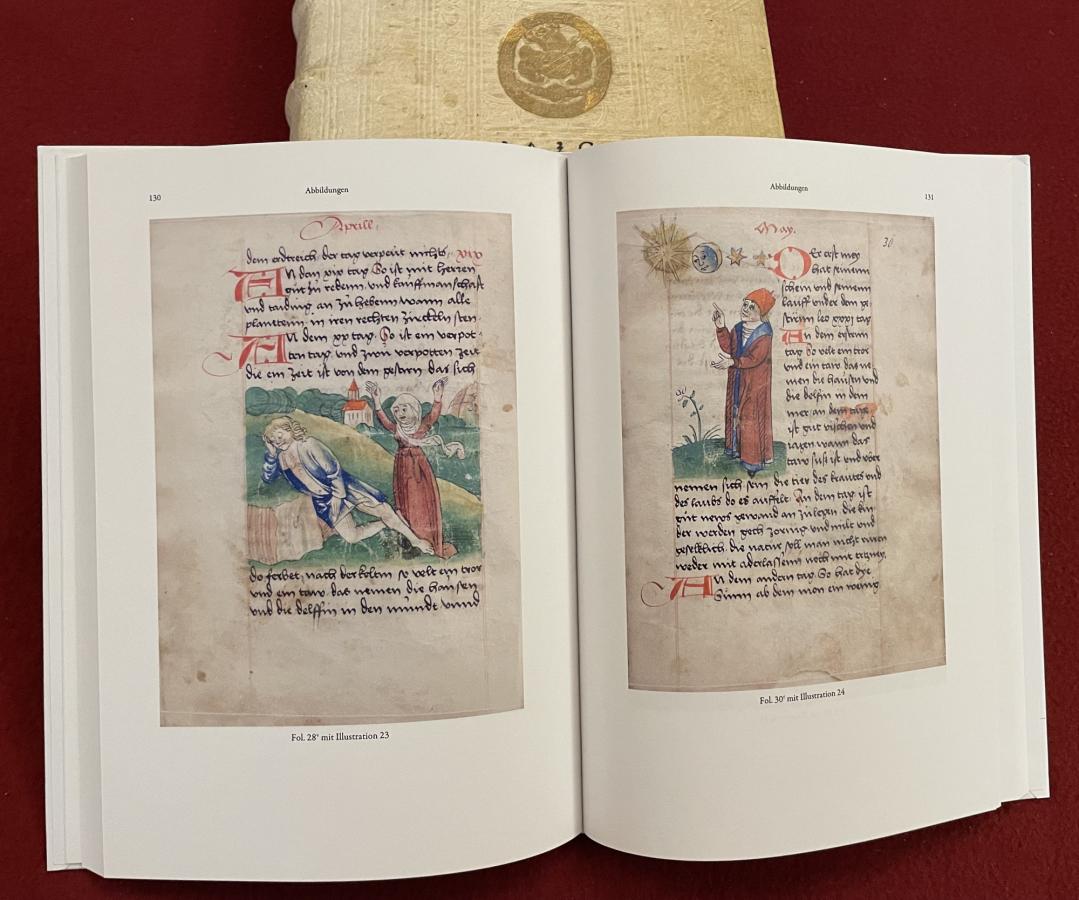 130
Abbildungen
Aprill
dem erdtreich der tag verpeüt nichts xix
An dem xix tag So ist mit herren
gůt zů redenn und kauffmanschafft
und taiding an zů hebenn wann alle
planetenn in iren rechten zirckeln sten
An dem xx tag So ist ein verpot
ten tag und zwen verpotten zeit
die ein zeit ist von dem gestirn das sich
do ferbet nach der kolten so velt ein tror
und ein taw das nemen die hausen
und die delffin in den mundt unnd
Fol. 28v mit Illustration 23
Abbildungen
131
May
30
Der erst mey
hat seinem
schein und seinem
lauff under dem ge
stirnn leo xxxi tag
An dem erstenn
tag So velt ein tror
und ein taw das ne
men die hausen und
die delfin in dem
mer an dem tage
ist gut vischen und
iagen wann das
taw süß ist und
nemen sich sein die tier des krautes und
des laubs do es auffelt An dem tag ist
gůt news gewand an zůlegen die kin
der werden gech zornig und milt und
geselklich die natur soll man nicht
weder mit aderlassenn noch mit ertzney
An dem andern tag So hat dye
Sunn ab dem mon ein wenig
Fol. 30r mit Illustration 24